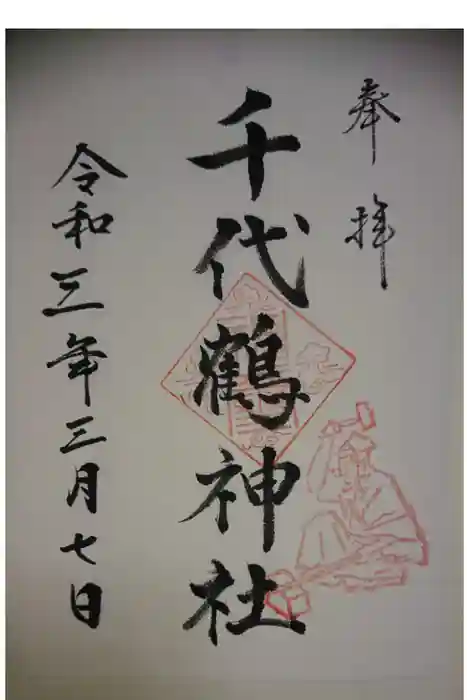 奉拝
千代鶴神社
令和三年三月七日